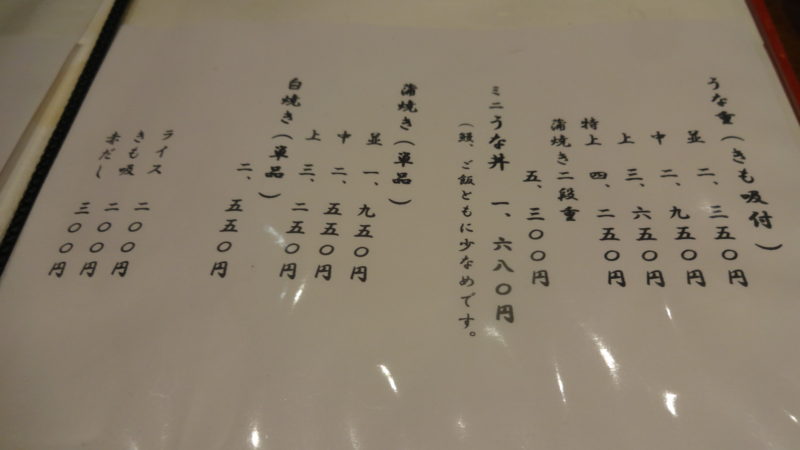 うな重(きも吸付)
並 二、三五〇円
中 二、九五〇円
上 三、六五〇円
特上 四、二五〇円
蒲焼き二段重
五、三〇〇円
ミニうな丼 一、六八〇円
(鰻、ご飯ともに少なめです。
蒲焼き(単品)
並 一、九五〇円
中 二、五五〇円
上 三、二五〇円
白焼き(単品)
二、五五〇円
ライス 二〇〇円
きも吸 二〇〇円
赤だし 三〇〇円